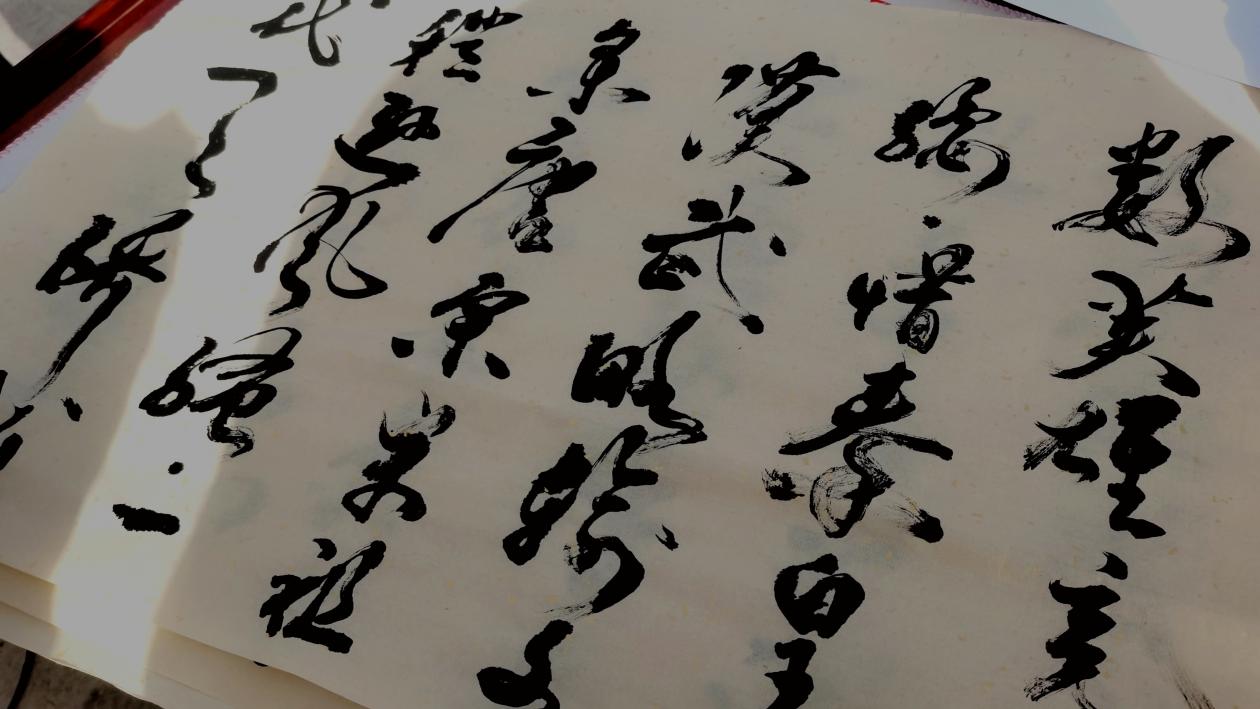 數英雄竞
腰惜秦皇
漢武略输文
采唐宗宋祖
稍逊風骚一
代天骄